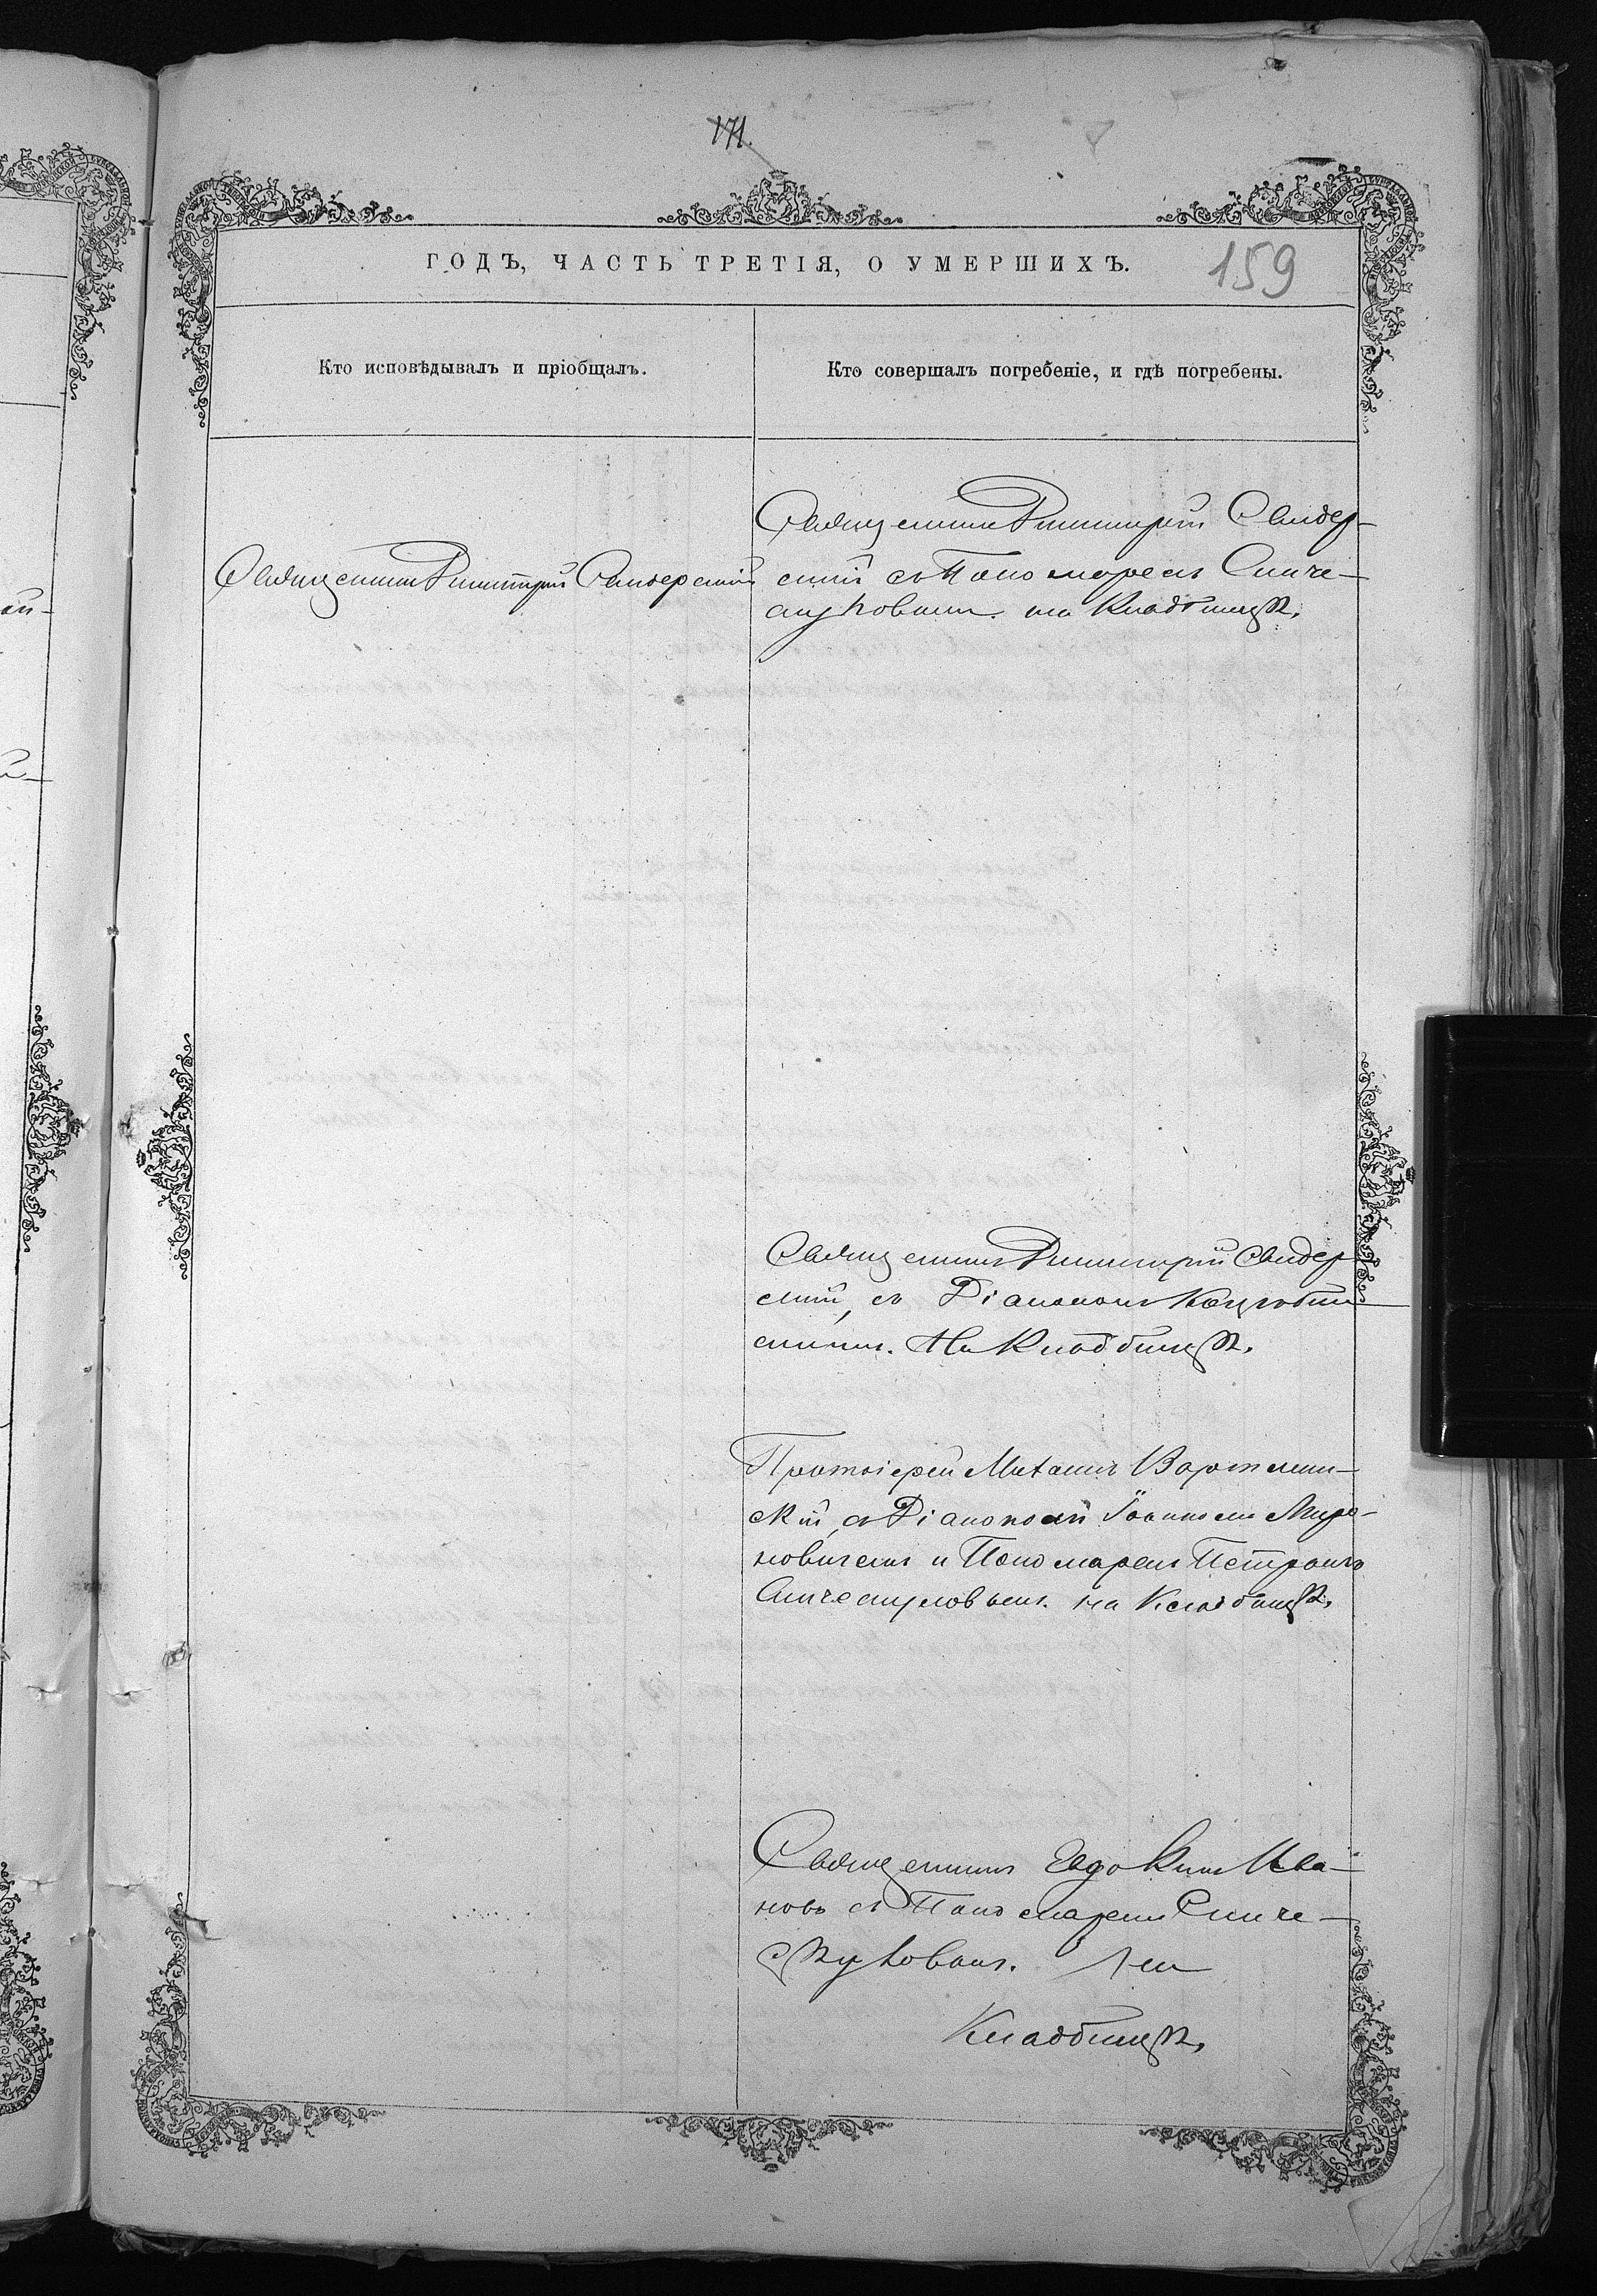 171.
ГОДЪ, ЧАСТЬ ТРЕТІЯ, О УМЕРШИХЪ.
159
Кто исповѣдывалъ и пріобщалъ.
Кто совершалъ погребеніе, и гдѣ погребены.
Священникъ Димитрій Свидерскій
Священникъ Димитрій Свидер-
скій съ Пономаремъ
на Кладбищѣ.
Священникъ Димитрій Свидер-
скій, съ Діакономъ
На Кладбищѣ.
Протоіерей
съ Діакономъ Іоанномъ Миро-
новичемъ и Пономаремъ Петромъ
на Кладбищѣ.
Священникъ Евдокимъ Ива-
новъ съ Пономаремъ
На
Кладбищѣ.